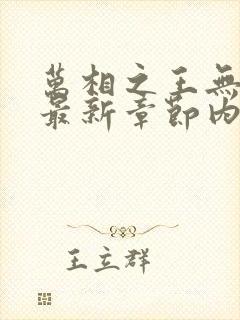 萬相之王無
最新章節內
王立群